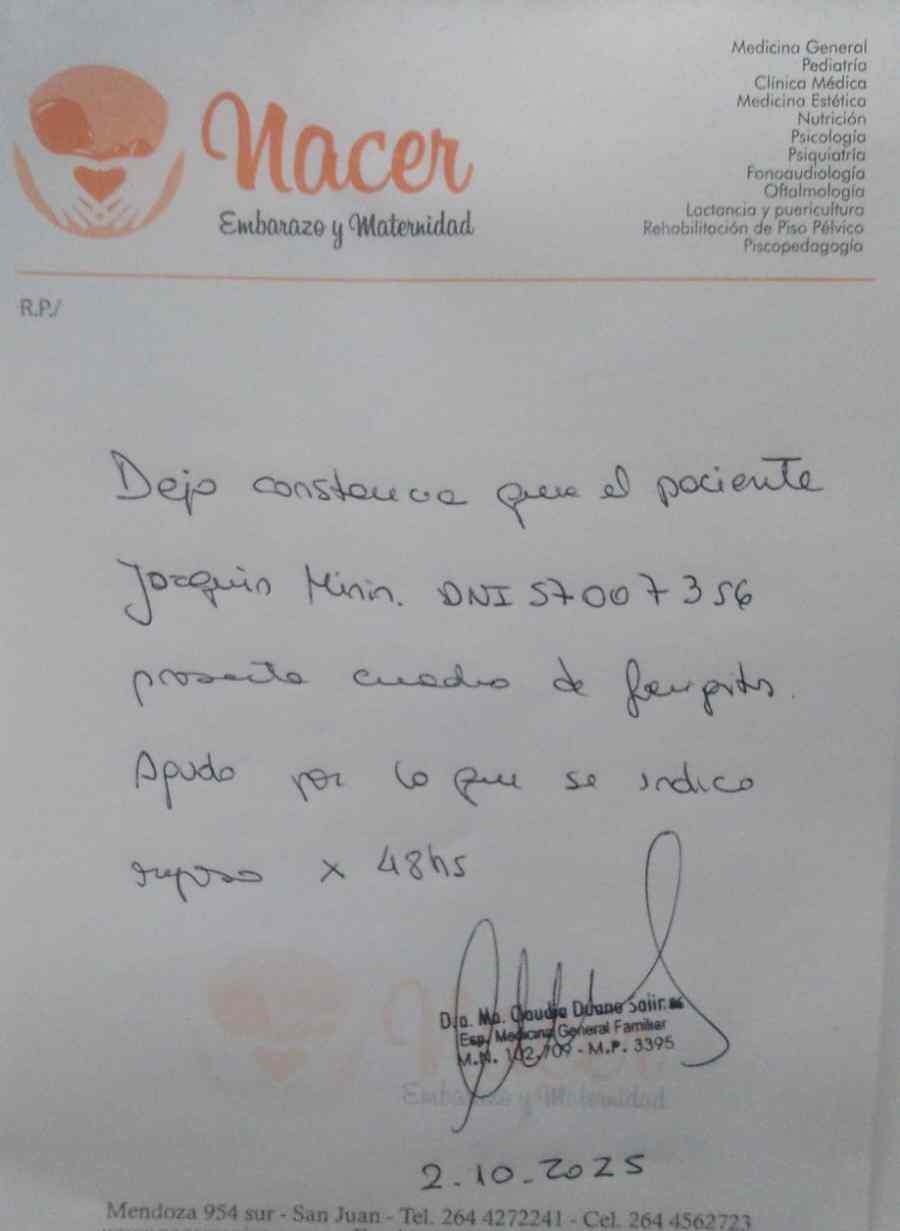 Nacer
Embarazo y Maternidad
Medicina General
Pediatría
Clínica Médica
Medicina Estética
Nutrición
Psicología
Psiquiatría
Fonoaudiología
Oftalmología
Lactancia y puericultura
Rehabilitación de Piso Pélvico
Piscopedagogía
R.P./
Dejo constancia que el paciente
Joaquin DNI 57007356
presenta cuadro de
Agudo por lo que se indica
reposo x 48hs
Dra. Ma. Claudia
Esp. Medicina General Familiar
M.N. 142.709 - M.P. 3395
Embarazo y Maternidad
2.10.2025
Mendoza 954 sur - San Juan - Tel. 264 4272241 - Cel. 264 4562723